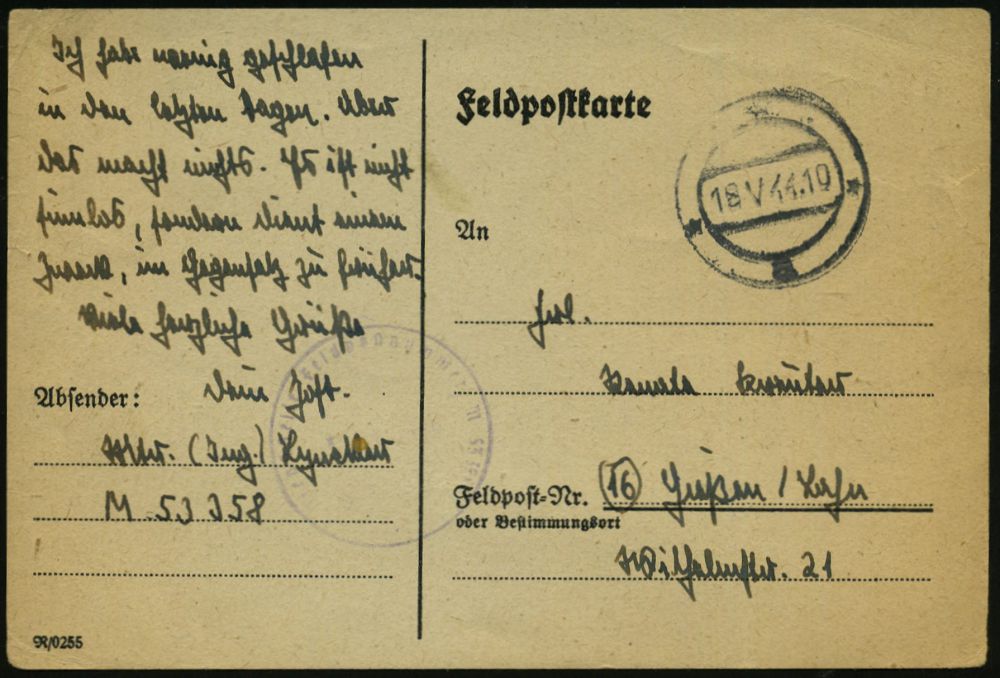 Ich habe wenig geschlafen
in den letzten Tagen. Aber
das macht nichts. Es ist nicht
sinnlos, sondern dient einem
Zweck, im Gegensatz zu früher.
Viele herzliche Grüße
Dein Jost.
Absender:
(Ing.)
M 53358
R/0255
Feldpostkarte
18 V 44.10
An
Frl.
Renate
Feldpost-Nr. (16) Gießen / Lahn
oder Bestimmungsort
Wilhelmstr. 21